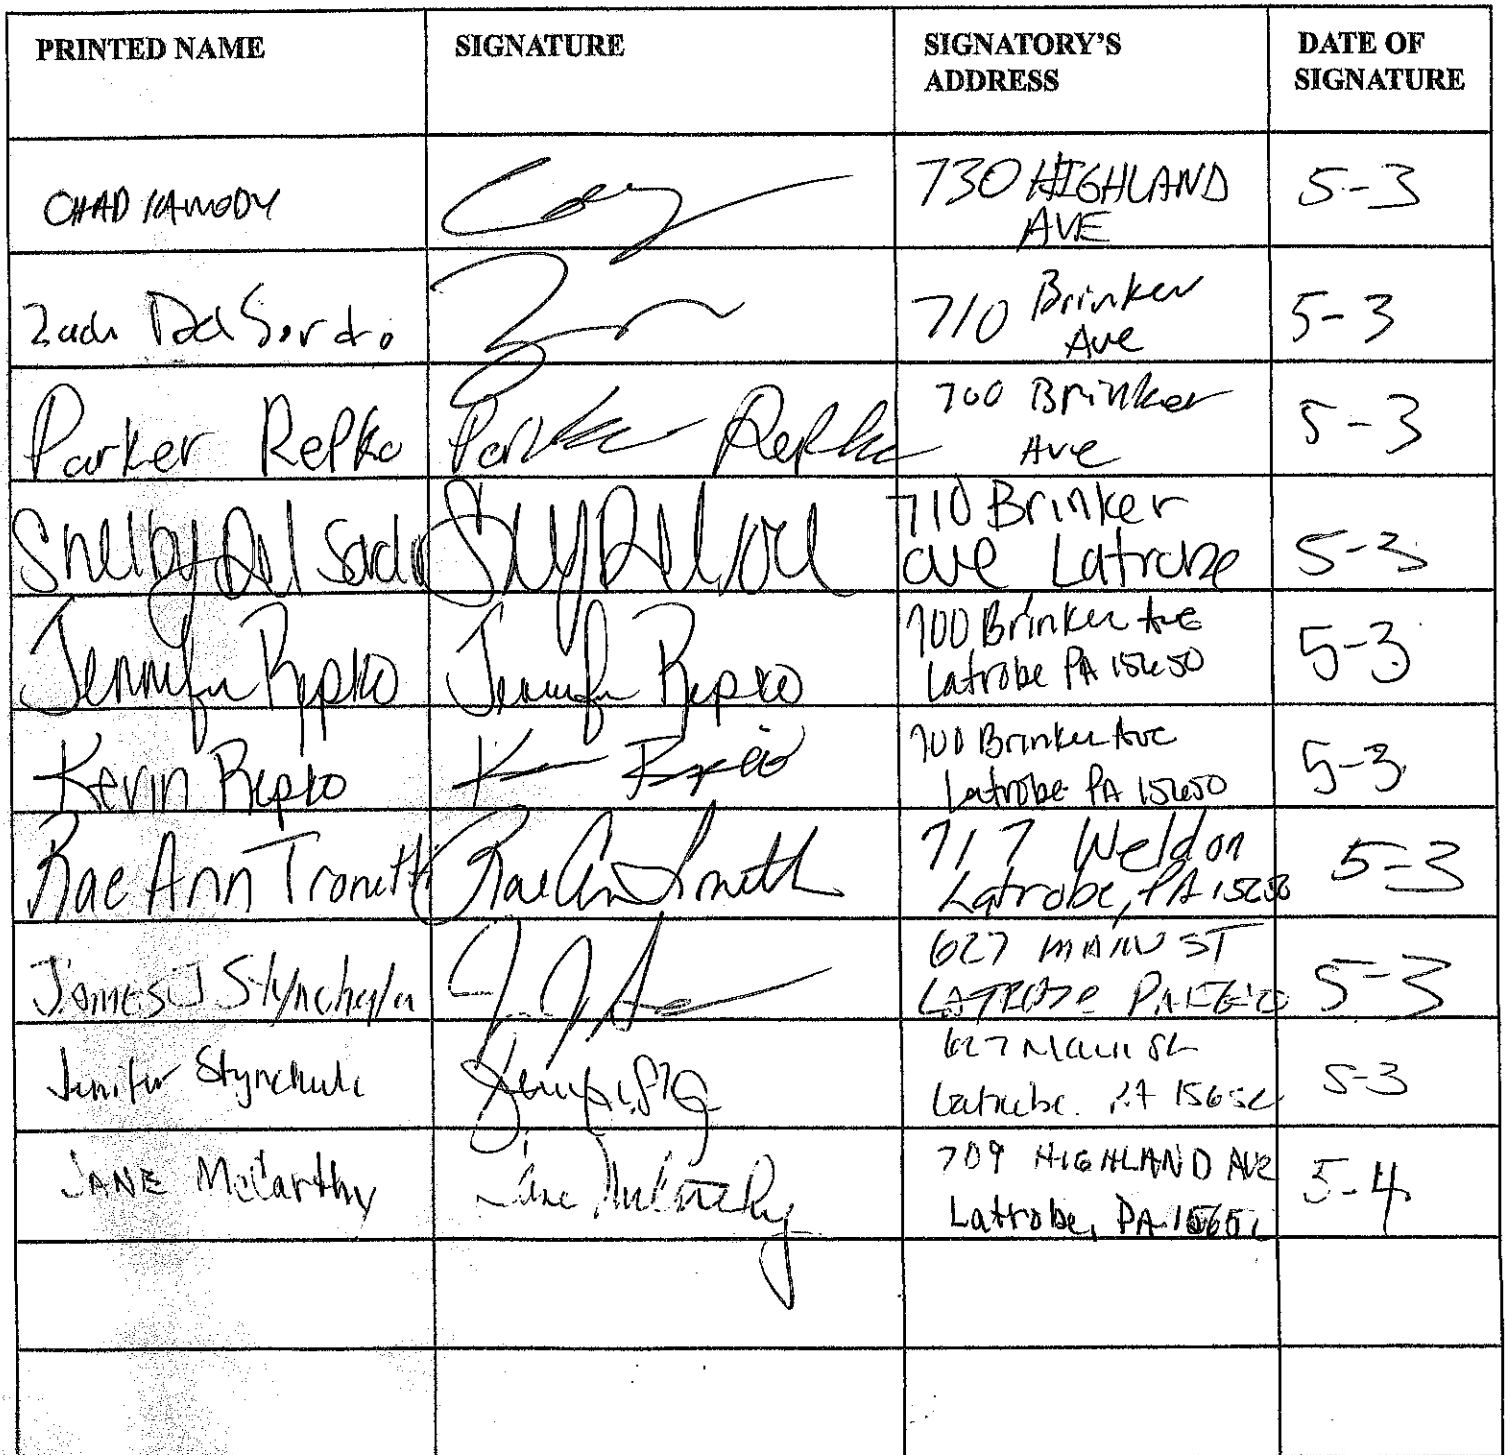 PRINTED NAME SIGNATURE SIGNATORY'S ADDRESS DATE OF SIGNATURE
CHAD KAMODY 730 HIGHLAND AVE 5-3
Zach DelSordo 710 Brinker Ave 5-3
Parker Repko Parker Repko 700 Brinker Ave 5-3
Shelby Del Sordo 710 Brinker ave Latrobe 5-3
Jennifer Repko Jennifer Repko 700 Brinker Ave Latrobe PA 15650 5-3
Kevin Repko 700 Brinker Ave Latrobe PA 15650 5-3
Rae Ann Tronetti 717 Weldon Latrobe, PA 5-3
James J 627 MAIN ST LATROBE PA 5-3
Jenifer 627 Main St Latrobe PA 5-3
JANE McCarthy Jane McCarthy 709 HIGHLAND AVE Latrobe, PA 5-4